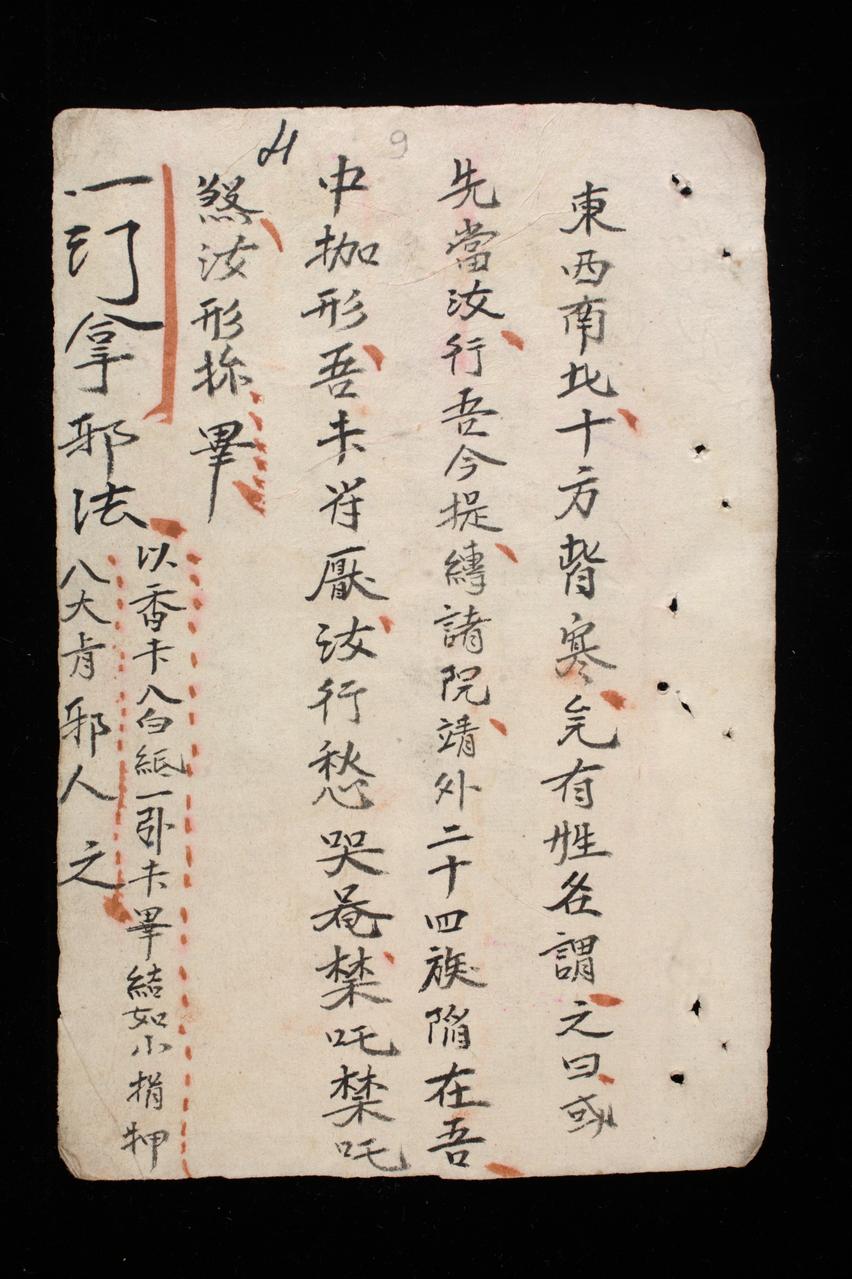 東西南北十方皆寒兂有姓名謂之曰或
先當汝行吾今提縳諸院靖外二十四族陷在吾
中拁形吾未符厭汝行愁哭奄禁吒禁吒
煞汝形畢
一訂拿邪法
以香卡八白紙一卧卡畢結如小捐押
八大肯邪人之
9